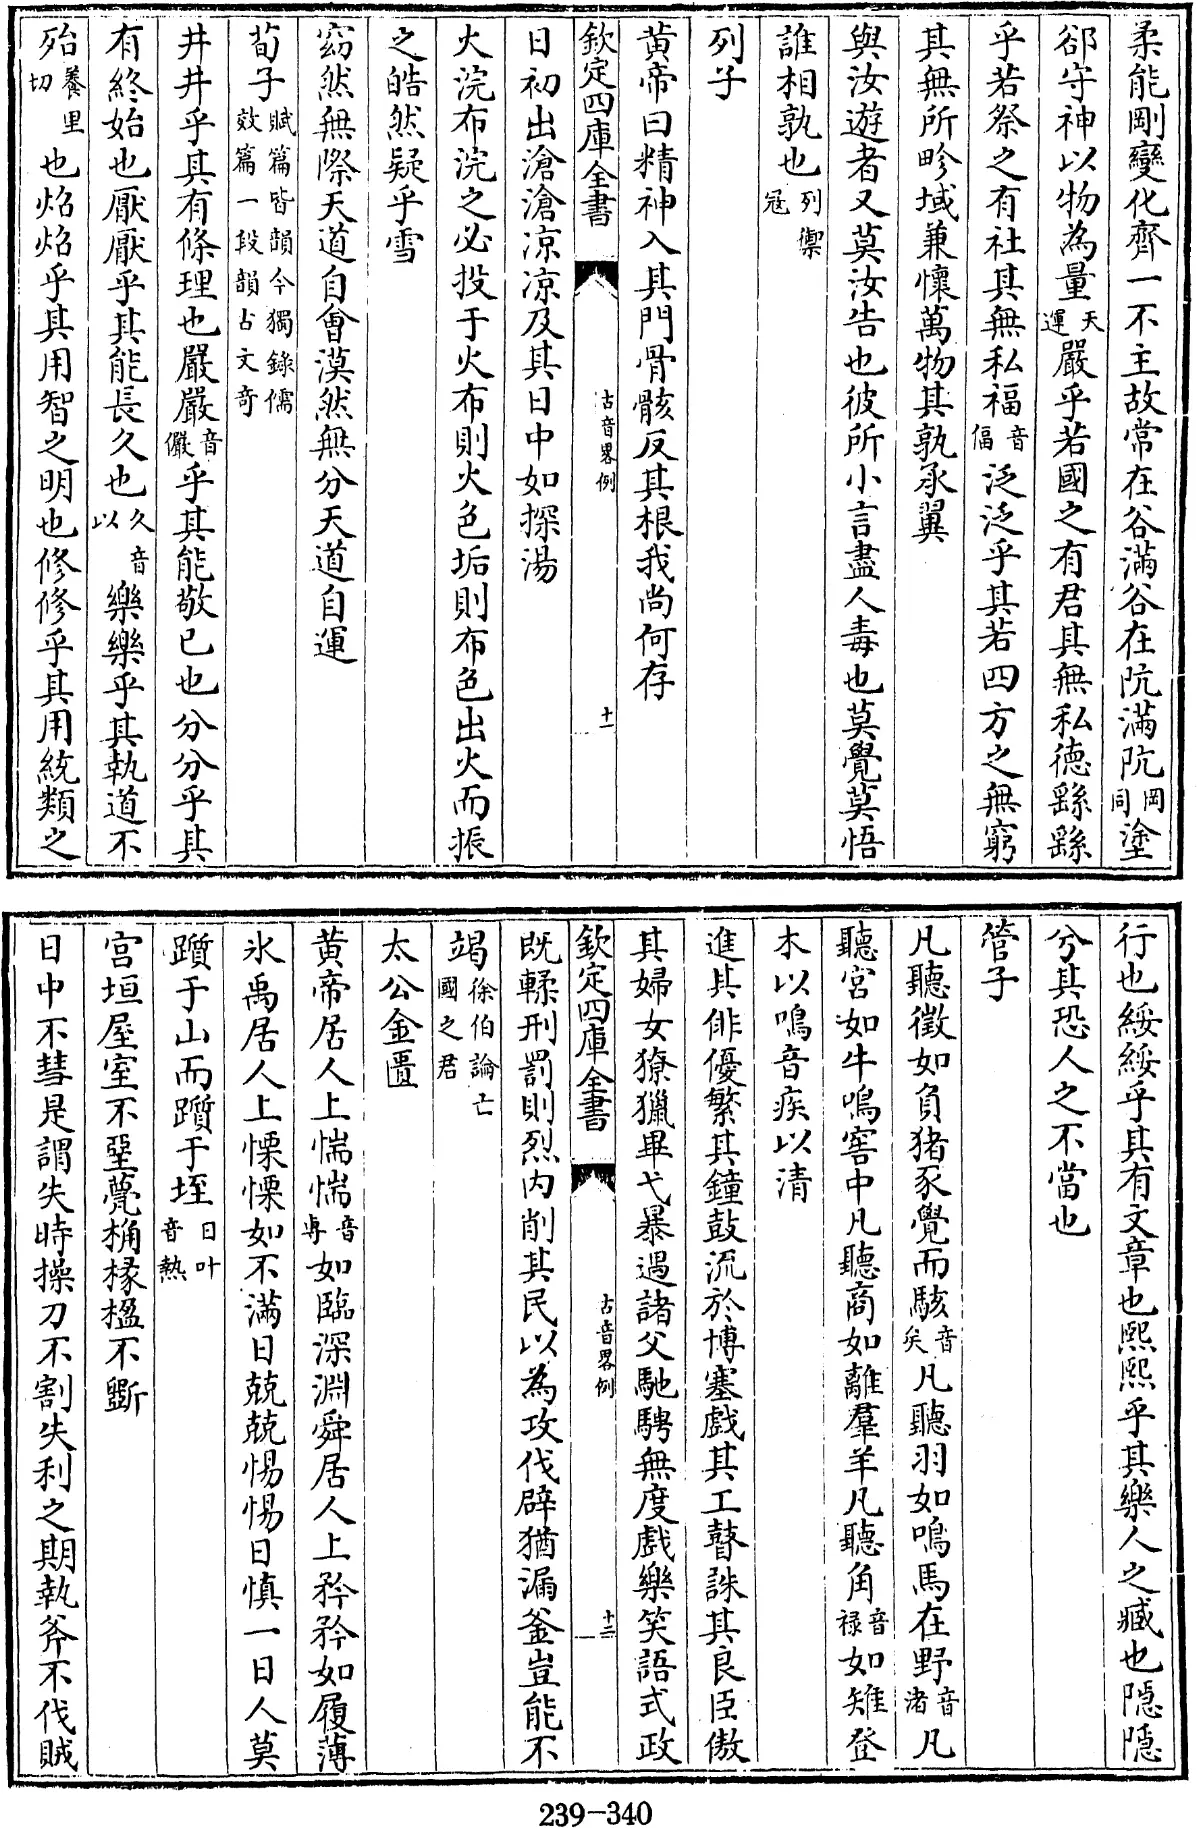 柔能剛變化齊一不主故常在谷滿谷在阬滿阬岡同塗
郤守神以物為量天運嚴乎若國之有君其無私德繇繇
乎若祭之有社其無私福音偪泛泛乎其若四方之無窮
其無所畛域兼懷萬物其孰承翼
與汝遊者又莫汝告也彼所小言盡人毒也莫覺莫悟
誰相孰也列禦冦
列子
黄帝曰精神入其門骨骸反其根我尚何存
欽定四庫全書
古音畧例
十一
日初出滄滄凉凉及其日中如探湯
火浣布浣之必投于火布則火色垢則布色出火而振
之皓然疑乎雪
窈然無際天道自會漠然無分天道自運
荀子賦篇皆韻今獨錄儒效篇一段韻古文奇
井井乎其有條理也嚴嚴音儼乎其能敬已也分分乎其
有終始也厭厭乎其能長久也久音以樂樂乎其執道不
殆養里切也炤炤乎其用智之明也修修乎其用統類之
行也綏綏乎其有文章也熙熙乎其樂人之臧也隠隠
兮其恐人之不當也
管子
凡聽徵如負猪豕覺而駭音矣凡聽羽如鳴馬在野音渚凡
聽宮如牛鳴窖中凡聽商如離羣羊凡聽角音禄如雉登
木以鳴音疾以清
進其俳優繁其鐘鼓流於博塞戲其工瞽誅其良臣傲
其婦女獠獵畢弋暴遇諸父馳騁無度戲樂笑語式政
欽定四庫全書
古音畧例
十二
既輮刑罰則烈内削其民以為攻伐辟猶漏釜豈能不
竭徐伯論亡國之君
太公金匱
黄帝居人上惴惴音専如臨深淵舜居人上矜矜如履薄
氷禹居人上慄慄如不滿日兢兢惕惕日慎一日人莫
躓于山而躓于垤日叶音熱
宫垣屋室不堊甍桷椽楹不斵
日中不彗是謂失時操刀不割失利之期執斧不伐賊
239-340